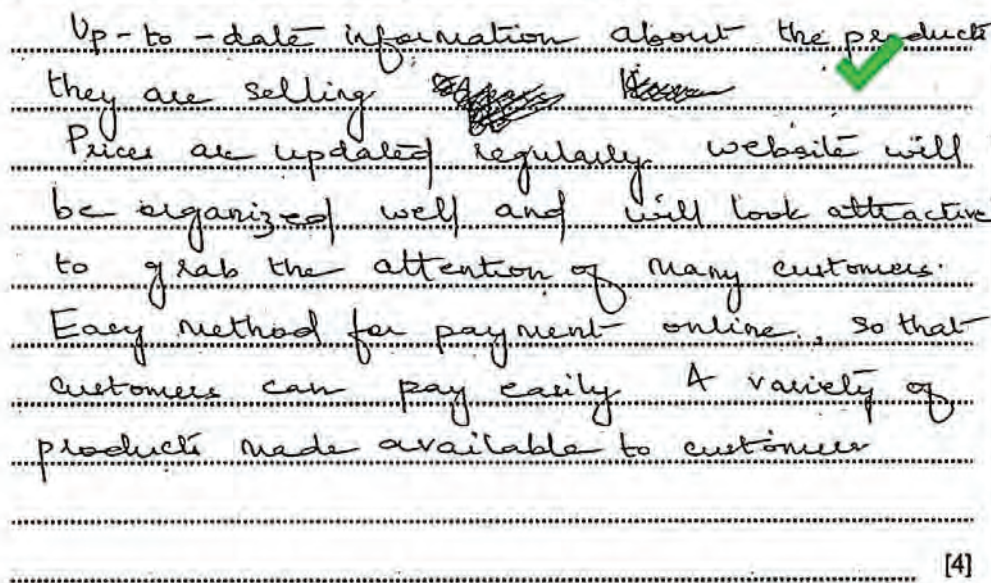 Up-to-date information about the products
they are selling
Prices are updated regularly. website will
be organized well and will look attractive
to grab the attention of many customers.
Easy method for payment online, so that
customers can pay easily A variety of
products made available to customers
[4]